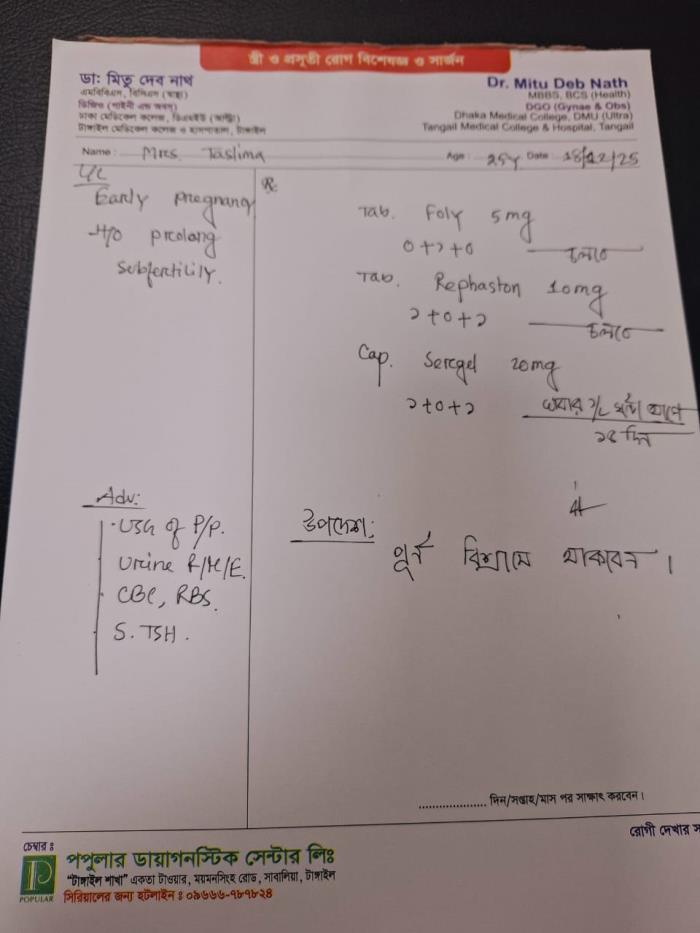 স্ত্রী ও প্রসূতী রোগ বিশেষজ্ঞ ও সার্জন
ডা: মিতু দেব নাথ
এমবিবিএস, বিসিএস (স্বাস্থ্য)
ডিজিও (গাইনী এন্ড অবস্)
ঢাকা মেডিকেল কলেজ, ডিএমইউ (আল্ট্রা)
টাঙ্গাইল মেডিকেল কলেজ ও হাসপাতাল, টাঙ্গাইল
Dr. Mitu Deb Nath
MBBS, BCS (Health)
DGO (Gynae & Obs)
Dhaka Medical College, DMU (Ultra)
Tangail Medical College & Hospital, Tangail
Name: Mrs. Taslima Age: 25y Date: 18/12/25
Early pregnancy
H/O prolong
subfertility.
Rx
Tab. Foly 5mg
0+১+0 চলবে
Tab. Rephaston 10mg
১+0+১ চলবে
Cap. Sergel 20mg
১+0+১ খাবার ১/২ ঘন্টা আগে
১৪ দিন
Adv:
USG of P/P.
Urine R/M/E.
CBC, RBS.
S. TSH.
উপদেশ:
পূর্ন বিশ্রামে থাকবেন।
.................... দিন/সপ্তাহ/মাস পর সাক্ষাৎ করবেন।
রোগী দেখার
চেম্বার ঃ
POPULAR
পপুলার ডায়াগনস্টিক সেন্টার লিঃ
"টাঙ্গাইল শাখা" একতা টাওয়ার, ময়মনসিংহ রোড, সাবালিয়া, টাঙ্গাইল
সিরিয়ালের জন্য হটলাইন ঃ ০৯৬৬৬-৭৮৭৮২৪